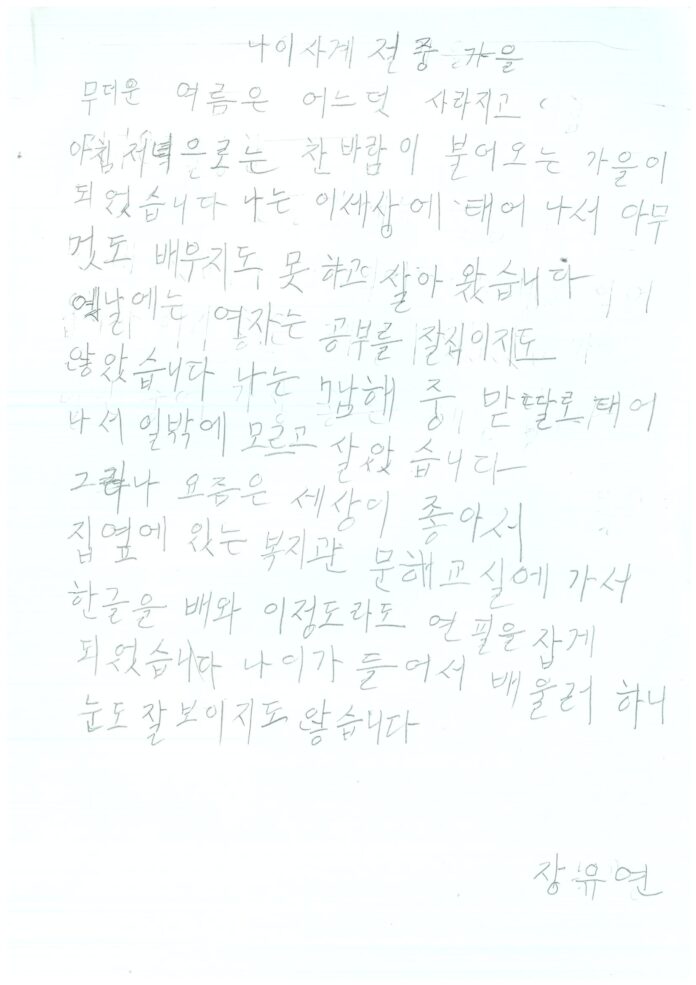 나이사계 전중 가을
무더운 여름은 어느덧 사라지고
아침저녁으로는 찬바람이 불어오는 가을이
되었습니다 나는 이세상에 태어 나서 아무
것도 배우지도 못 하고 살아 왔습니다
옛날에는 여자는 공부를 잘식이지도
않았습니다 나는 7남해 중 맏딸로 태어
나서 일밖에 모르고 살았습니다
그러나 요즘은 세상이 좋아서
집옆에 있는 복지관 문해교실에 가서
한글을 배와 이정도라도 연필을 잡게
되었습니다 나이가 들어서 배울러 하니
눈도 잘보이지도 않습니다
장유연